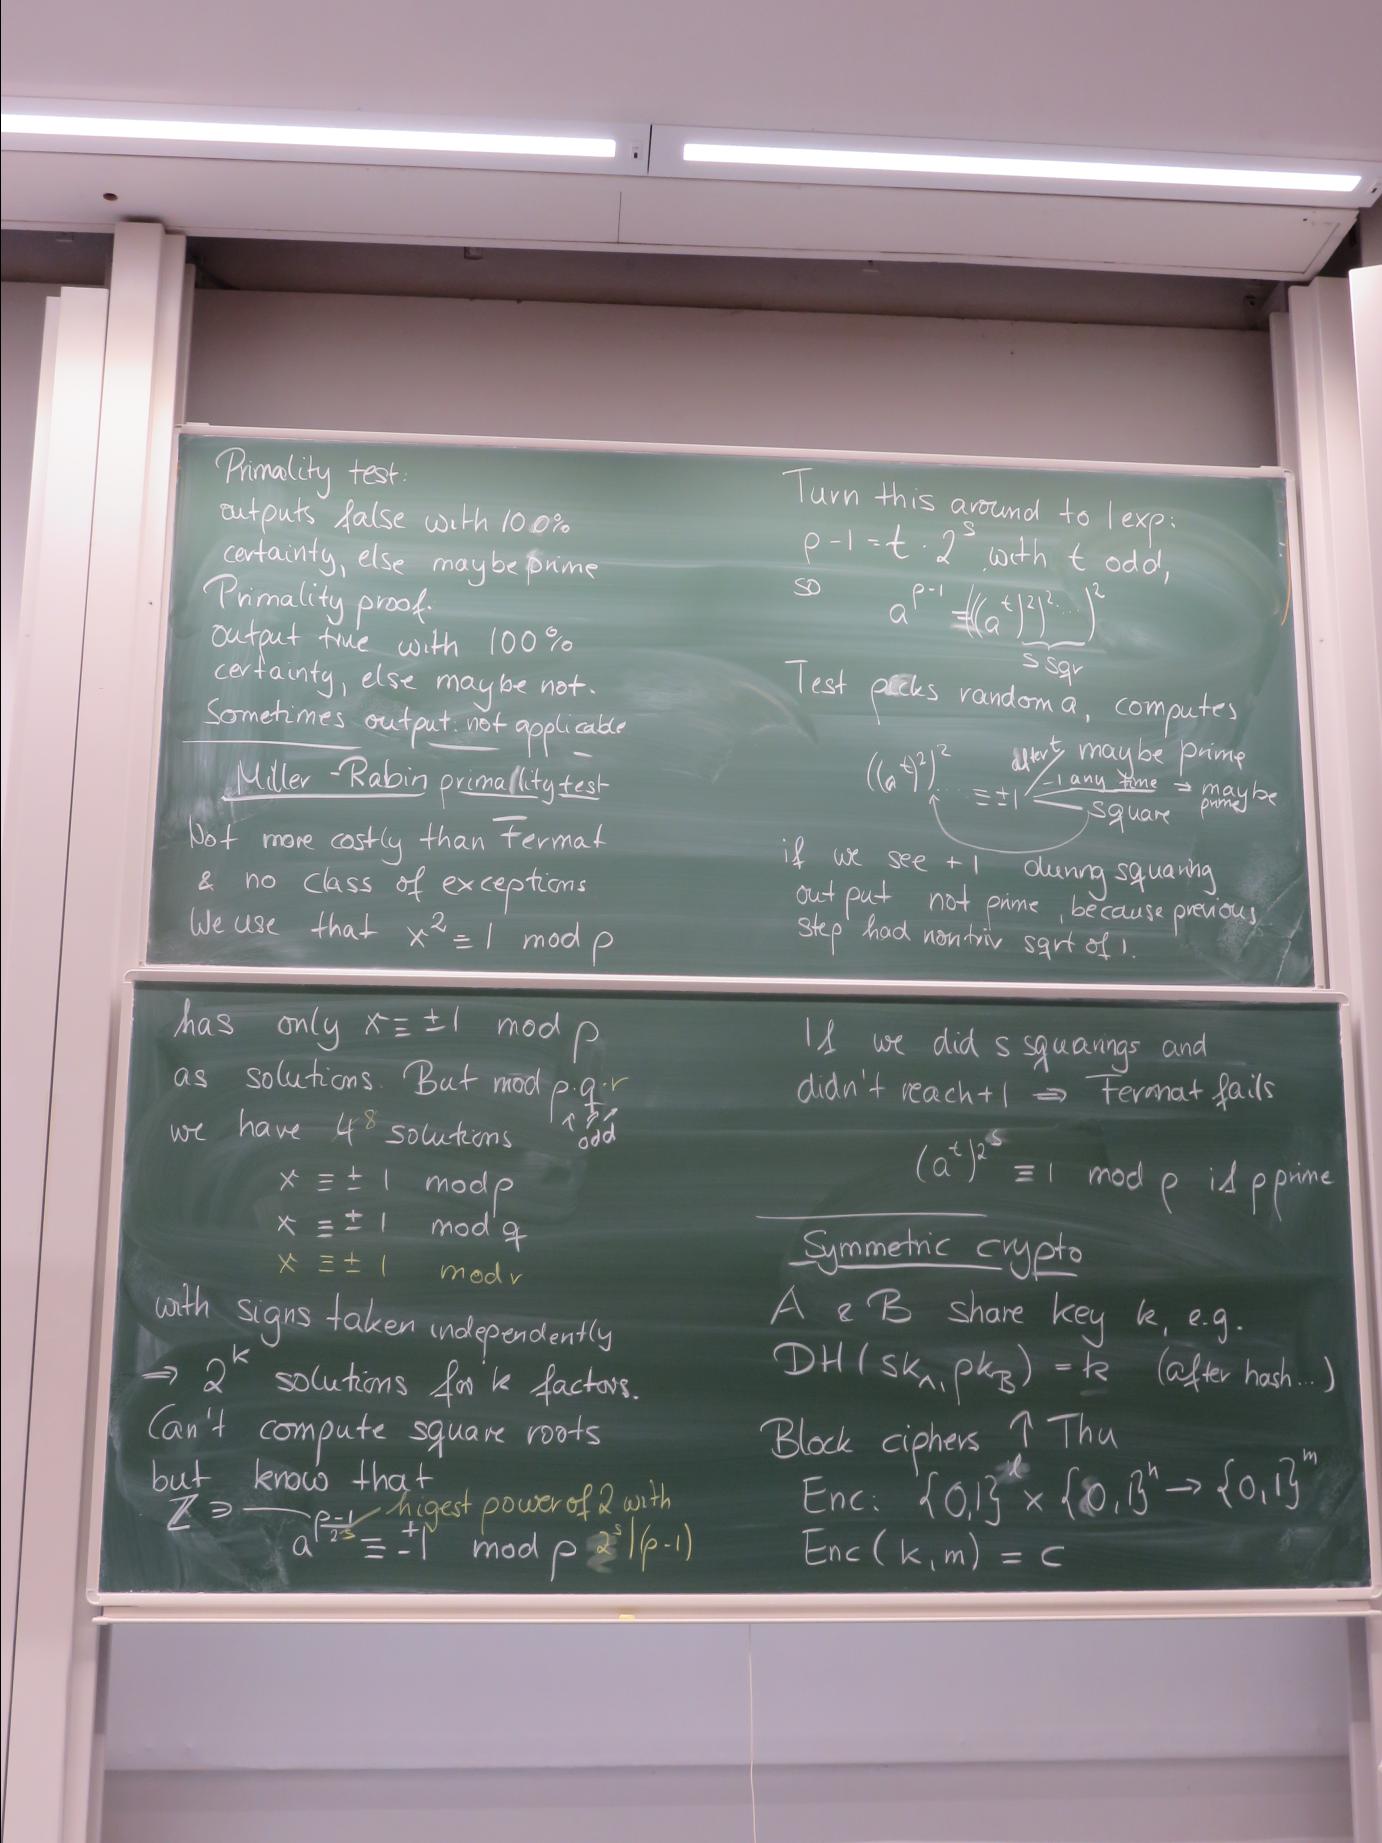 Primality test:
outputs false with 100%
certainty, else maybe prime
Primality proof.
output true with 100%
certainty, else maybe not.
Sometimes output: not applicable
Miller-Rabin primallity test
Not more costly than Fermat
& no class of exceptions
We use that x² ≡ 1 mod p
has only x ≡ ±1 mod p
as solutions. But mod p·q·r
↑ ↗ ↗
odd
we have 4 8 solutions
x ≡ ± 1 mod p
x ≡ ± 1 mod q
x ≡ ± 1 mod r
with signs taken independently
⇒ 2^k solutions for k factors.
Can't compute square roots
but know that
ℤ ∋ higest power of 2 with
a^((p-1)/2^s) ≡ ±1 mod p 2^s | (p-1)
Turn this around to 1 exp:
p-1 = t · 2^s with t odd,
so a^(p-1) = (((a^t)²)²....)²
s sqr
Test picks random a, computes
after t maybe prime
((a^t)²)²... ≡ ±1 -1 any time ⇒ maybe prime
square
if we see +1 during squaring
output not prime, because previous
step had nontriv sqrt of 1.
If we did s squarings and
didn't reach +1 ⇒ Fermat fails
(a^t)^2^s ≡ 1 mod p if p prime
Symmetric crypto
A & B share key k, e.g.
DH(sk_A, pk_B) = k (after hash...)
Block ciphers ↑ Thu
Enc: {0,1}^l × {0,1}^n → {0,1}^m
Enc(k,m) = c